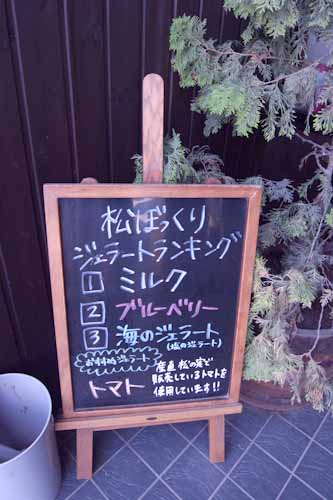 松ぼっくり
ジェラートランキング
1 ミルク
2 ブルーベリー
3 海のジェラート
(塩のジェラート)
おすすめジェラート
トマト
産直 松の実で
販売しているトマトを
使用しています!!